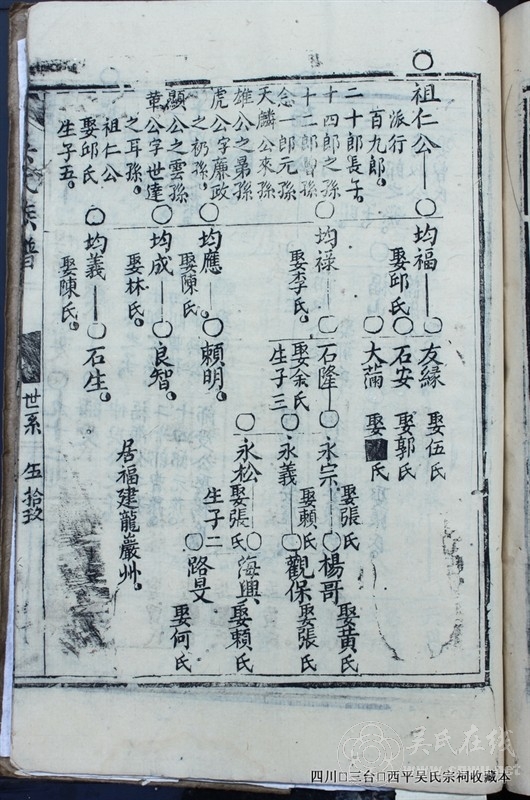 祖仁公 均福 友緣 娶伍氏
派行 娶邱氏 石安 娶郭氏
百九郎 大滿 娶 氏
二十郎長子
十四郎之孫 均祿 石隆 永宗 楊哥
娶張氏 娶黃氏
十二郎曾孫 娶李氏 娶余氏 永義 觀保
生子三 娶賴氏 娶張氏
念一郎元孫
天麟公來孫
雄公之晜孫 永松 海興
娶張氏 娶賴氏
生子二 路旻
娶何氏
虎公字廉政 均應 賴明
之礽孫 娶陳氏
顯公之雲孫
華公字世達 均成 良智 居福建龍巖州
之耳孫 娶林氏
祖仁公
娶邱氏 均義 石生
生子五 娶陳氏
族譜
世系 伍拾玖
吴氏在线
四川□三台□西平吴氏宗祠收藏本